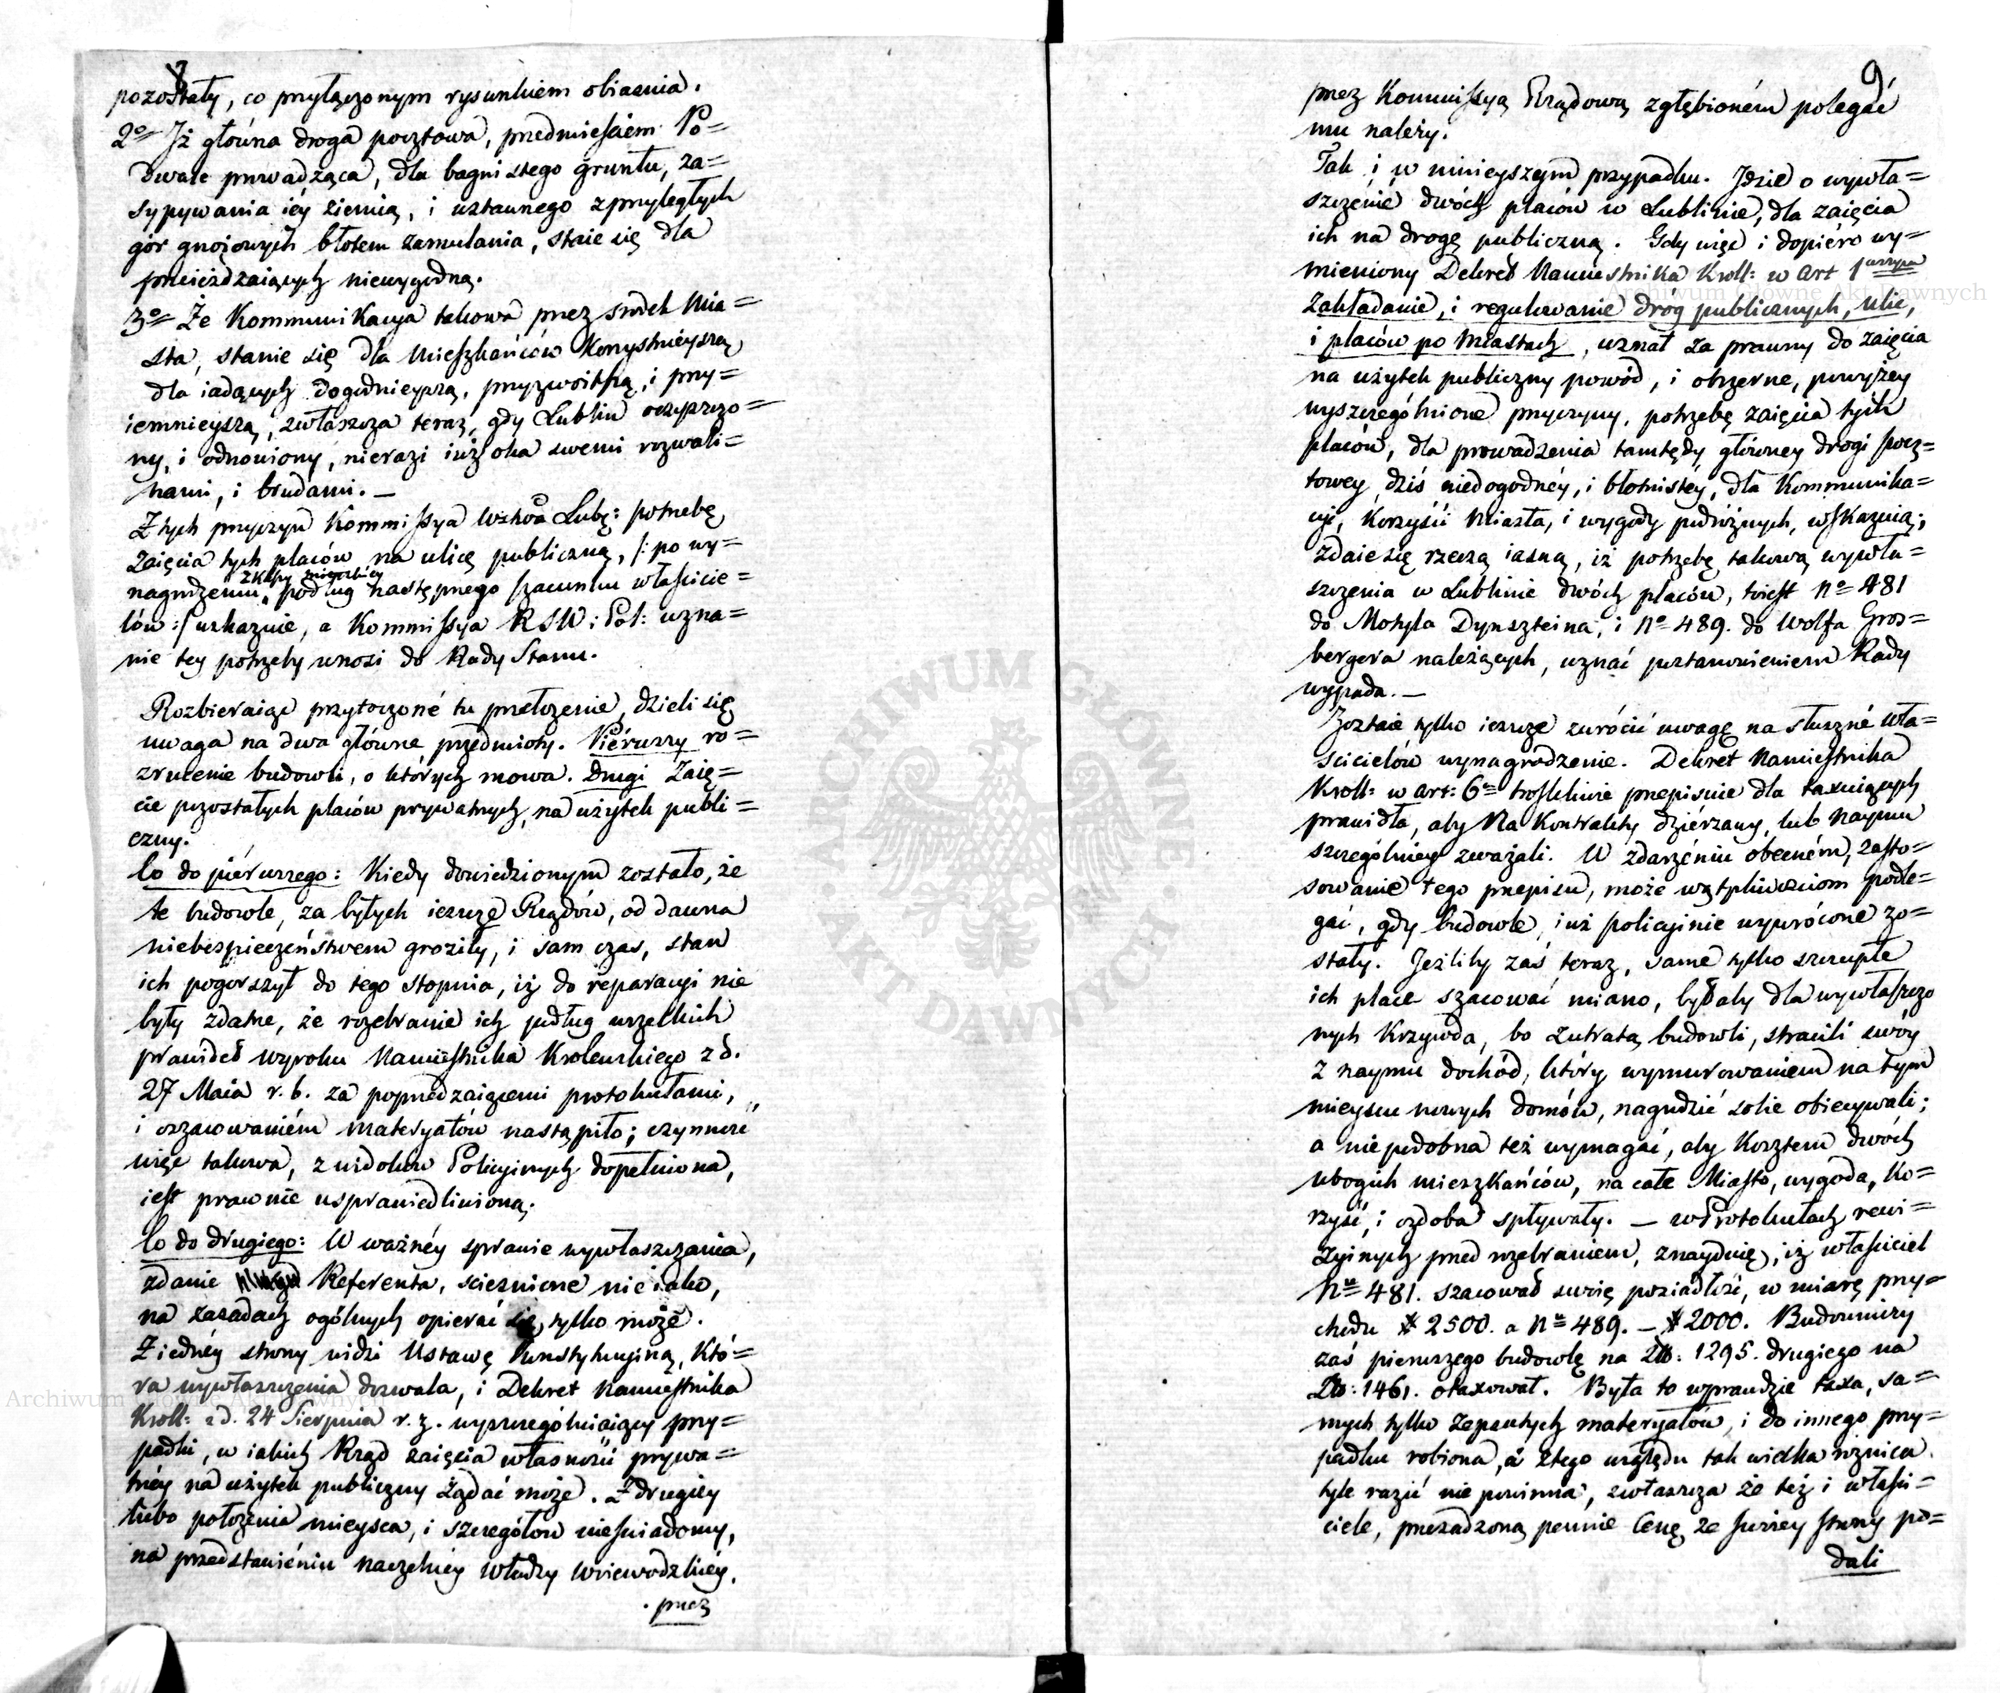 8
pozostały, co przyłączonym rysunkiem obiasnia.
2o Iż główna droga pocztowa, przedmieściem Po=
dwale prowadząca, dla bagnistego gruntu, za=
sypywania iéy ziemią, i ustawnego z przyległych
gór gnoiowych błotem zamulania, staie się dla
przeieżdzaiących niewygodną.
3o Że Kommunikacya takowa przez srodek Mia=
sta, stanie się dla Mieszkańców korzystnieyszą,
dla iadących dogodnieyszą, przyzwoitszą, i przy=
iemnieyszą, zwłaszcza teraz, gdy Lublin oczyszczo=
ny, i odnowiony, nierazi iuż oka swemi rozwali=
nami, i brudami. —
Z tych przyczyn Kommissya Wztwa Lubę: potrzebę
zaięcia tych placów na ulicę publiczną, /: po wy=
nagrodzeniu z Kassy mieyskiey podług następnego szacunku właścicie=
lów :/ wskazuie, a Kommissya RSW: Pol: uzna=
nie tey potrzeby wnosi do Rady Stanu.
Rozbieraiąc przytoczoné tu przełożenie, dzieli się
uwaga na dwa główne przedmioty. Piérwszy ro=
zrucenie budowli, o których mowa. Drugi Zaię=
cie pozostałych placów prywatnych, na użytek publi=
czny.
Co do piérwszego: Kiedy dowiedzionym zostało, że
te budowle, za byłych ieszcze Rządów, od dawna
niebespieczeństwem groziły, i sam czas, stan
ich pogorszył do tego stopnia, iż do reparacyi nie
były zdatne, że rozebranie ich podług wszelkich
prawideł wyroku Namiestnika Krolewskiego z d.
27 Maia r. b. za poprzedzaiącemi protokułami,
i oszacowaniém materyałów nastąpiło; czynność
więc takowa, z widoków Policyinych dopełniona,
iest prawnie usprawiedliwioną.
Co do drugiego: W ważnéy sprawie wywłaszczania,
zdanie Referenta, scieśnione nieiako,
na zasadach ogólnych opierać się tylko może.
Z iednéy strony widzi Ustawę konstytucyiną, któ=
ra wywłaszczenia dozwala, i Dekret Namiestnika
Kroll: z d. 24 Sierpnia r. z. wyszczególniaiący przy=
padki, w iakich Rząd zaięcia własności prywa=
tnéy na użytek publiczny żądać może. Z drugiéy
lubo położenia mieysca, i szczegółów nieświadomy,
na przedstawieniu naczelnéy władzy Woiewodzkiéy,
przez
9
przez Kommissyą Rządową zgłębioném polegać
mu należy.
Tak i w ninieyszym przypadku. Idzie o wywła=
szczénié dwóch placów w Lublinie, dla zaięcia
ich na drogę publiczną. Gdy więc i dopiéro wy=
mieniony Dekret Namiestnika Kroll: w art 1
Zakładanie, i regulowanie dróg publicznych, ulic,
i placów po Miastach, uznał za prawny do zaięcia
na użytek publiczny powód, i obszerne, powyżey
wyszczególnione przyczyny, potrzebę zaięcia tych
placów, dla prowadzenia tamtędy głównéy drogi pocz=
towey, dziś niedogodnéy, i błotnistéy, dla Kommunika=
cyi, Korzyści Miasta, i wygody podróżnych, wskazuią;
zdaie się rzeczą iasną, iż potrzebę takową wywła=
szczenia w Lublinie dwóch placów, to iest No 481
do Motyla Dynszteina, i No 489. do Wolfa Gros=
bergera należących, uznać postanowieniem Rady
wypada. —
Zostaie tylko ieszcze zwrócić uwagę na słuszné wła=
ścicielów wynagrodzenie. Dekret Namiestnika
Kroll: w art: 6m troskliwie przepisuie dla taxuiących
prawidła, aby na Kontrakty dzierżawy, lub Naymu
szczególniey zważali. W zdarzéniu obecném, zasto=
sowanie tego przepisu, może wątpliwościom podle=
gać, gdy budowle, iuż policyinie wywrócone zo=
stały. Jeżliby zaś teraz, same tylko szczupłe
ich place szacować miano, byłaby dla wywłaszczo
nych Krzywda, bo z utratą budowli, stracili swóy
z naymu dochód, który wymurowaniem na tym
mieyscu nowych domów, nagrodzić sobie obiecywali;
a niepodobna też wymagać, aby kosztem dwóch
ubogich mieszkańców, na całe Miasto, wygoda, Ko=
rzyść, i ozdoba spływały. — W Protokułach rewi=
zyinych przed rozebraniem, znayduię, iż właściciel
No 481. szacował swoię posiadłość, w miarę przy=
chodu # 2500. a No 489. — # 2000. Budowniczy
zaś pierwszego budowlę na Zł: 1295. drugiego na
Zł: 1461. otaxował. Była to wprawdzie taxa, sa=
mych tylko zepsutych materyałów, i do innego przy=
padku robiona, a z tego względu tak wielka roznica
tyle razić nie powinna, zwłaszcza że też i właści=
ciele, przesadzoną pewnie Cenę ze swoiey strony po=
dali